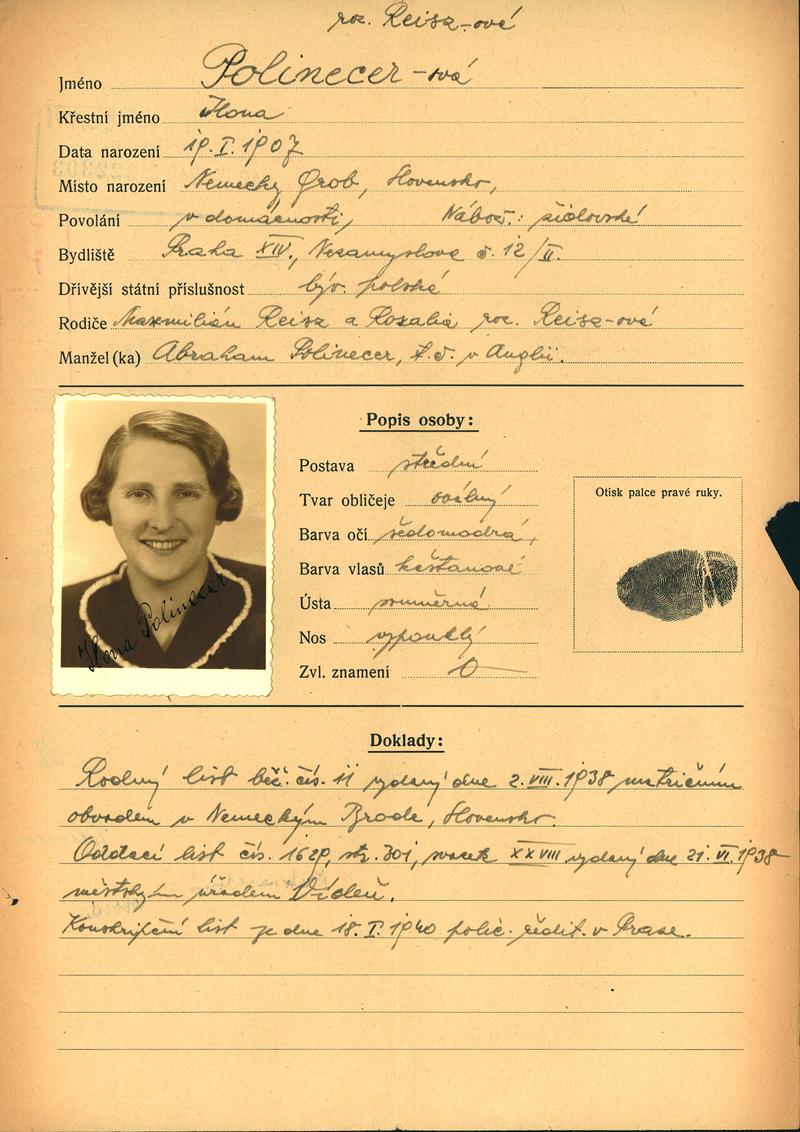 roz. Reisz-ové
Jméno Polinecer-ová
Křestní jméno Ilona
Data narození 19. I. 1907
Místo narození Nemecky Grob, Slovensko,
Povolání v domácnosti, Nábož.: židovské
Bydliště Praha XIV., Nezamyslova č. 12/II.
Dřívější státní příslušnost býv. polská
Rodiče Maxmilián Reisz a Rozalie roz. Reisz-ová
Manžel (ka) Abraham Polinecer, t.č. v Anglii.
Popis osoby:
Postava střední
Tvar obličeje oválný
Barva očí šedomodrá,
Barva vlasů kaštanové
Ústa souměrná
Nos vypouklý
Zvl. znamení 0
Otisk palce pravé ruky.
Ilona Polinecer
Doklady:
Rodný list běž. čís. 11 vydaný dne 2. VIII. 1938 matričním
obvodem v Nemeckým Brode, Slovensko.
Oddací list čís. 1629, str. 301, svazek XXVIII vydaný dne 21. VI. 1938
městským úřadem Vídeň.
Konskripční list ze dne 18. I. 1940 polic. ředit. v Praze.